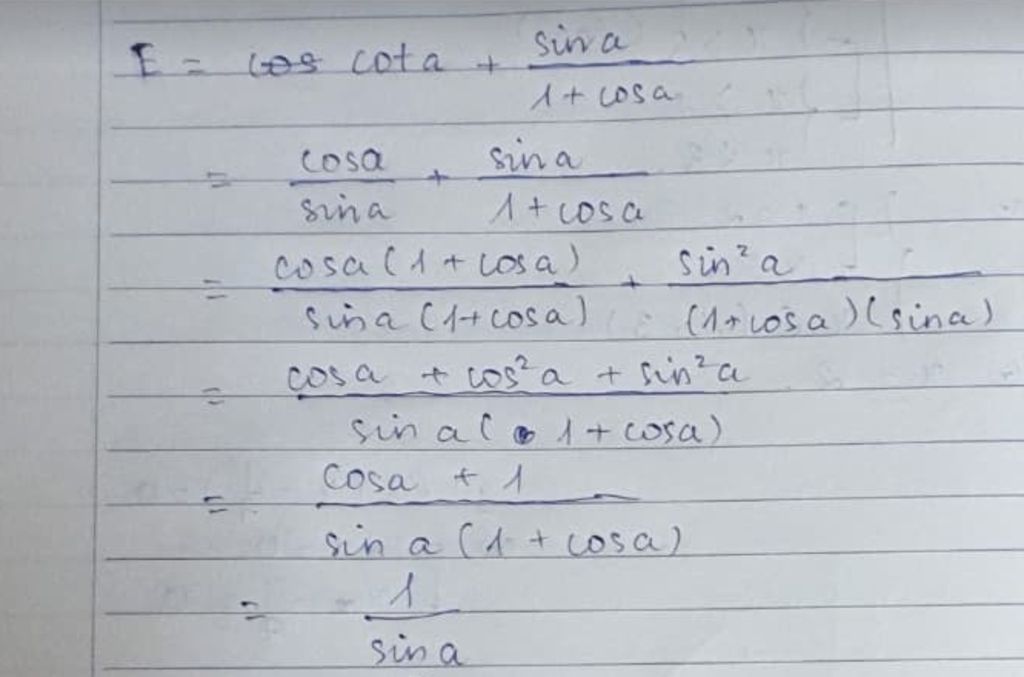 E = cos cot a + sin a / 1 + cos a
= cos a / sin a + sin a / 1 + cos a
= cos a (1 + cos a) / sin a (1 + cos a) + sin² a / (1 + cos a)(sin a)
= cos a + cos² a + sin² a / sin a (1 + cos a)
= cos a + 1 / sin a (1 + cos a)
= 1 / sin a